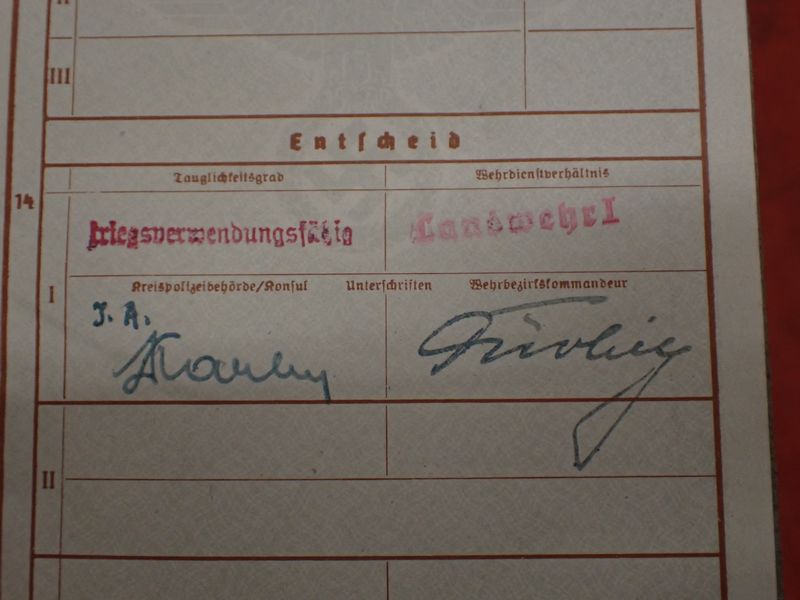 III
Entscheid
14
Tauglichkeitsgrad Wehrdienstverhältnis
kriegsverwendungsfähig Landwehr I
I
Kreispolizeibehörde/Konsul Unterschriften Wehrbezirkskommandeur
J. A.
II